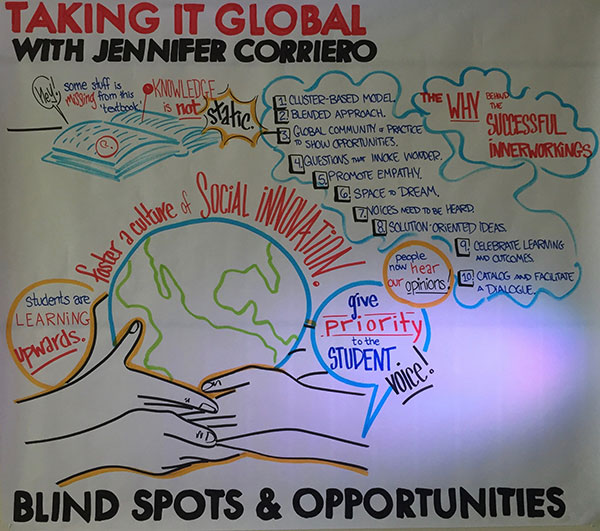 TAKING IT GLOBAL
WITH JENNIFER CORRIERO
Hey!
some stuff is
missing from this
'textbook'
KNOWLEDGE
is not
static.
1. CLUSTER-BASED MODEL.
2. BLENDED APPROACH.
3. GLOBAL COMMUNITY of PRACTICE
TO SHOW OPPORTUNITIES.
4. QUESTIONS THAT INVOKE WONDER.
5. PROMOTE EMPATHY.
6. SPACE TO DREAM.
7. VOICES NEED TO BE HEARD.
8. SOLUTION-ORIENTED IDEAS.
9. CELEBRATE LEARNING
AND OUTCOMES.
10. CATALOG AND FACILITATE
A DIALOGUE.
THE WHY BEHIND
THE
SUCCESSFUL
INNERWORKINGS
foster a culture of SOCIAL INNOVATION!
students are
LEARNING
upwards.
people
now hear
our opinions!
give
priority
to the
STUDENT
voice!
BLIND SPOTS & OPPORTUNITIES